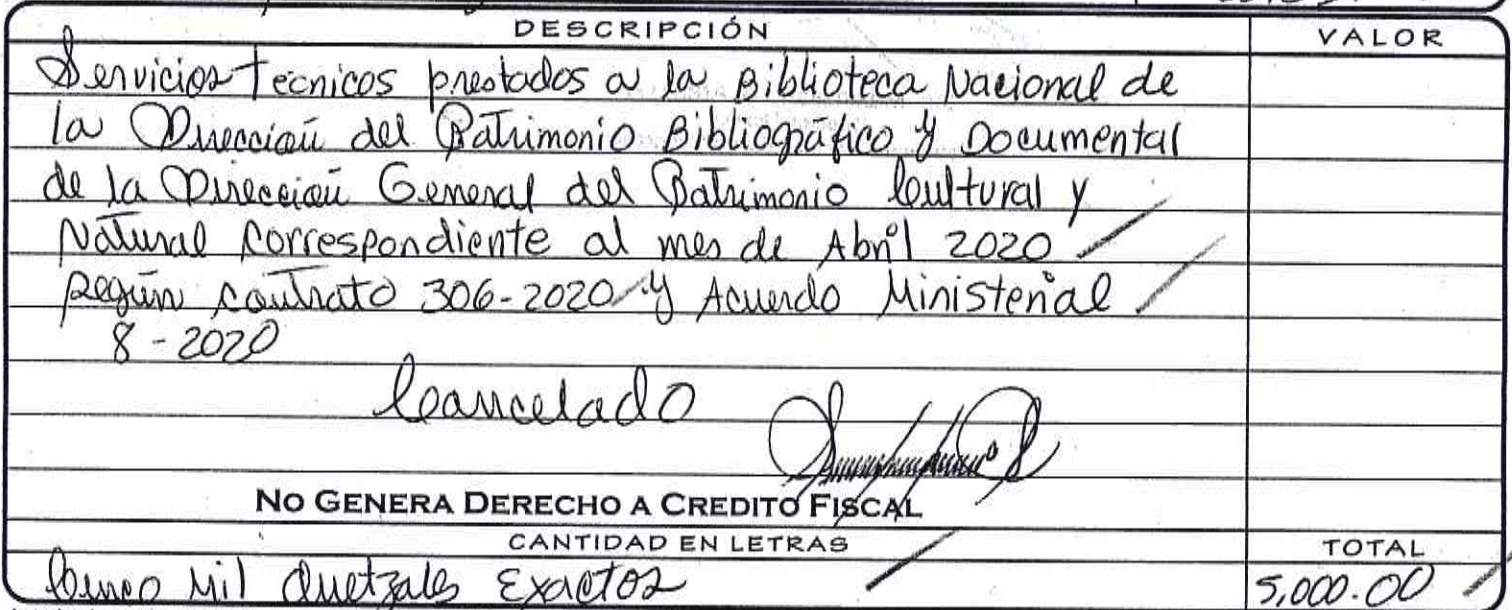 DESCRIPCIÓN VALOR
Servicios Tecnicos prestados a la Biblioteca Nacional de
la Dirección del Patrimonio Bibliográfico y Documental
de la Dirección General del Patrimonio Cultural y
Natural correspondiente al mes de Abril 2020
según contrato 306-2020 y Acuerdo Ministerial
8-2020
Cancelado
NO GENERA DERECHO A CREDITO FISCAL
CANTIDAD EN LETRAS TOTAL
Cinco Mil Quetzales Exactos 5,000.00